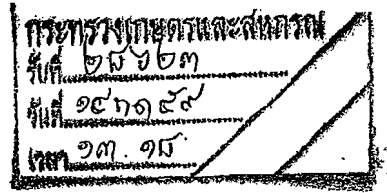 กระทรวงเกษตรและสหกรณ์
รับที่ ๒๘๖๒๓
วันที่
เวลา ๑๓.๑๘